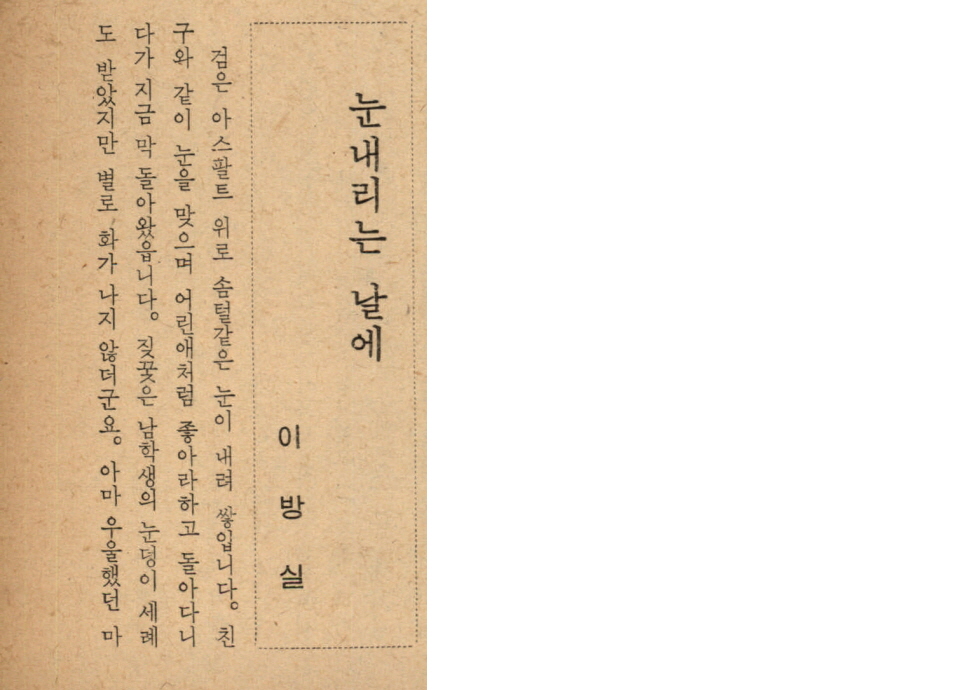 눈내리는 날에
이 방 실
검은 아스팔트 위로 솜털같은 눈이 내려 쌓입니다. 친
구와 같이 눈을 맞으며 어린애처럼 좋아라하고 돌아다니
다가 지금 막 돌아왔읍니다. 짖꿎은 남학생의 눈덩이 세례
도 받았지만 별로 화가 나지 않더군요. 아마 우울했던 마